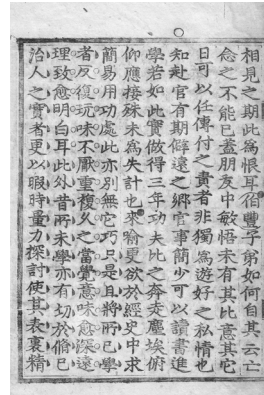 相見之期此為恨耳伯豐字弟如何自其云亡
念之不能已蓋朋友中敏悟未有其比意其它
日可以任傳付之責者非獨為遊好之私情也
知赴官有期僻遠之鄉官事簡少可以讀書進
學若如此實做得三年功夫比之奔走塵埃俯
仰應接殊未為失計也來喻更欲於經史中求
簡易用功處此亦別無它巧只是且將所已學
者反復玩味不厭重複久之當覺意味愈深遠
理致愈明白耳此外昔所未學亦有切於脩己
治人之實者更以暇時量力探討使其表裏精